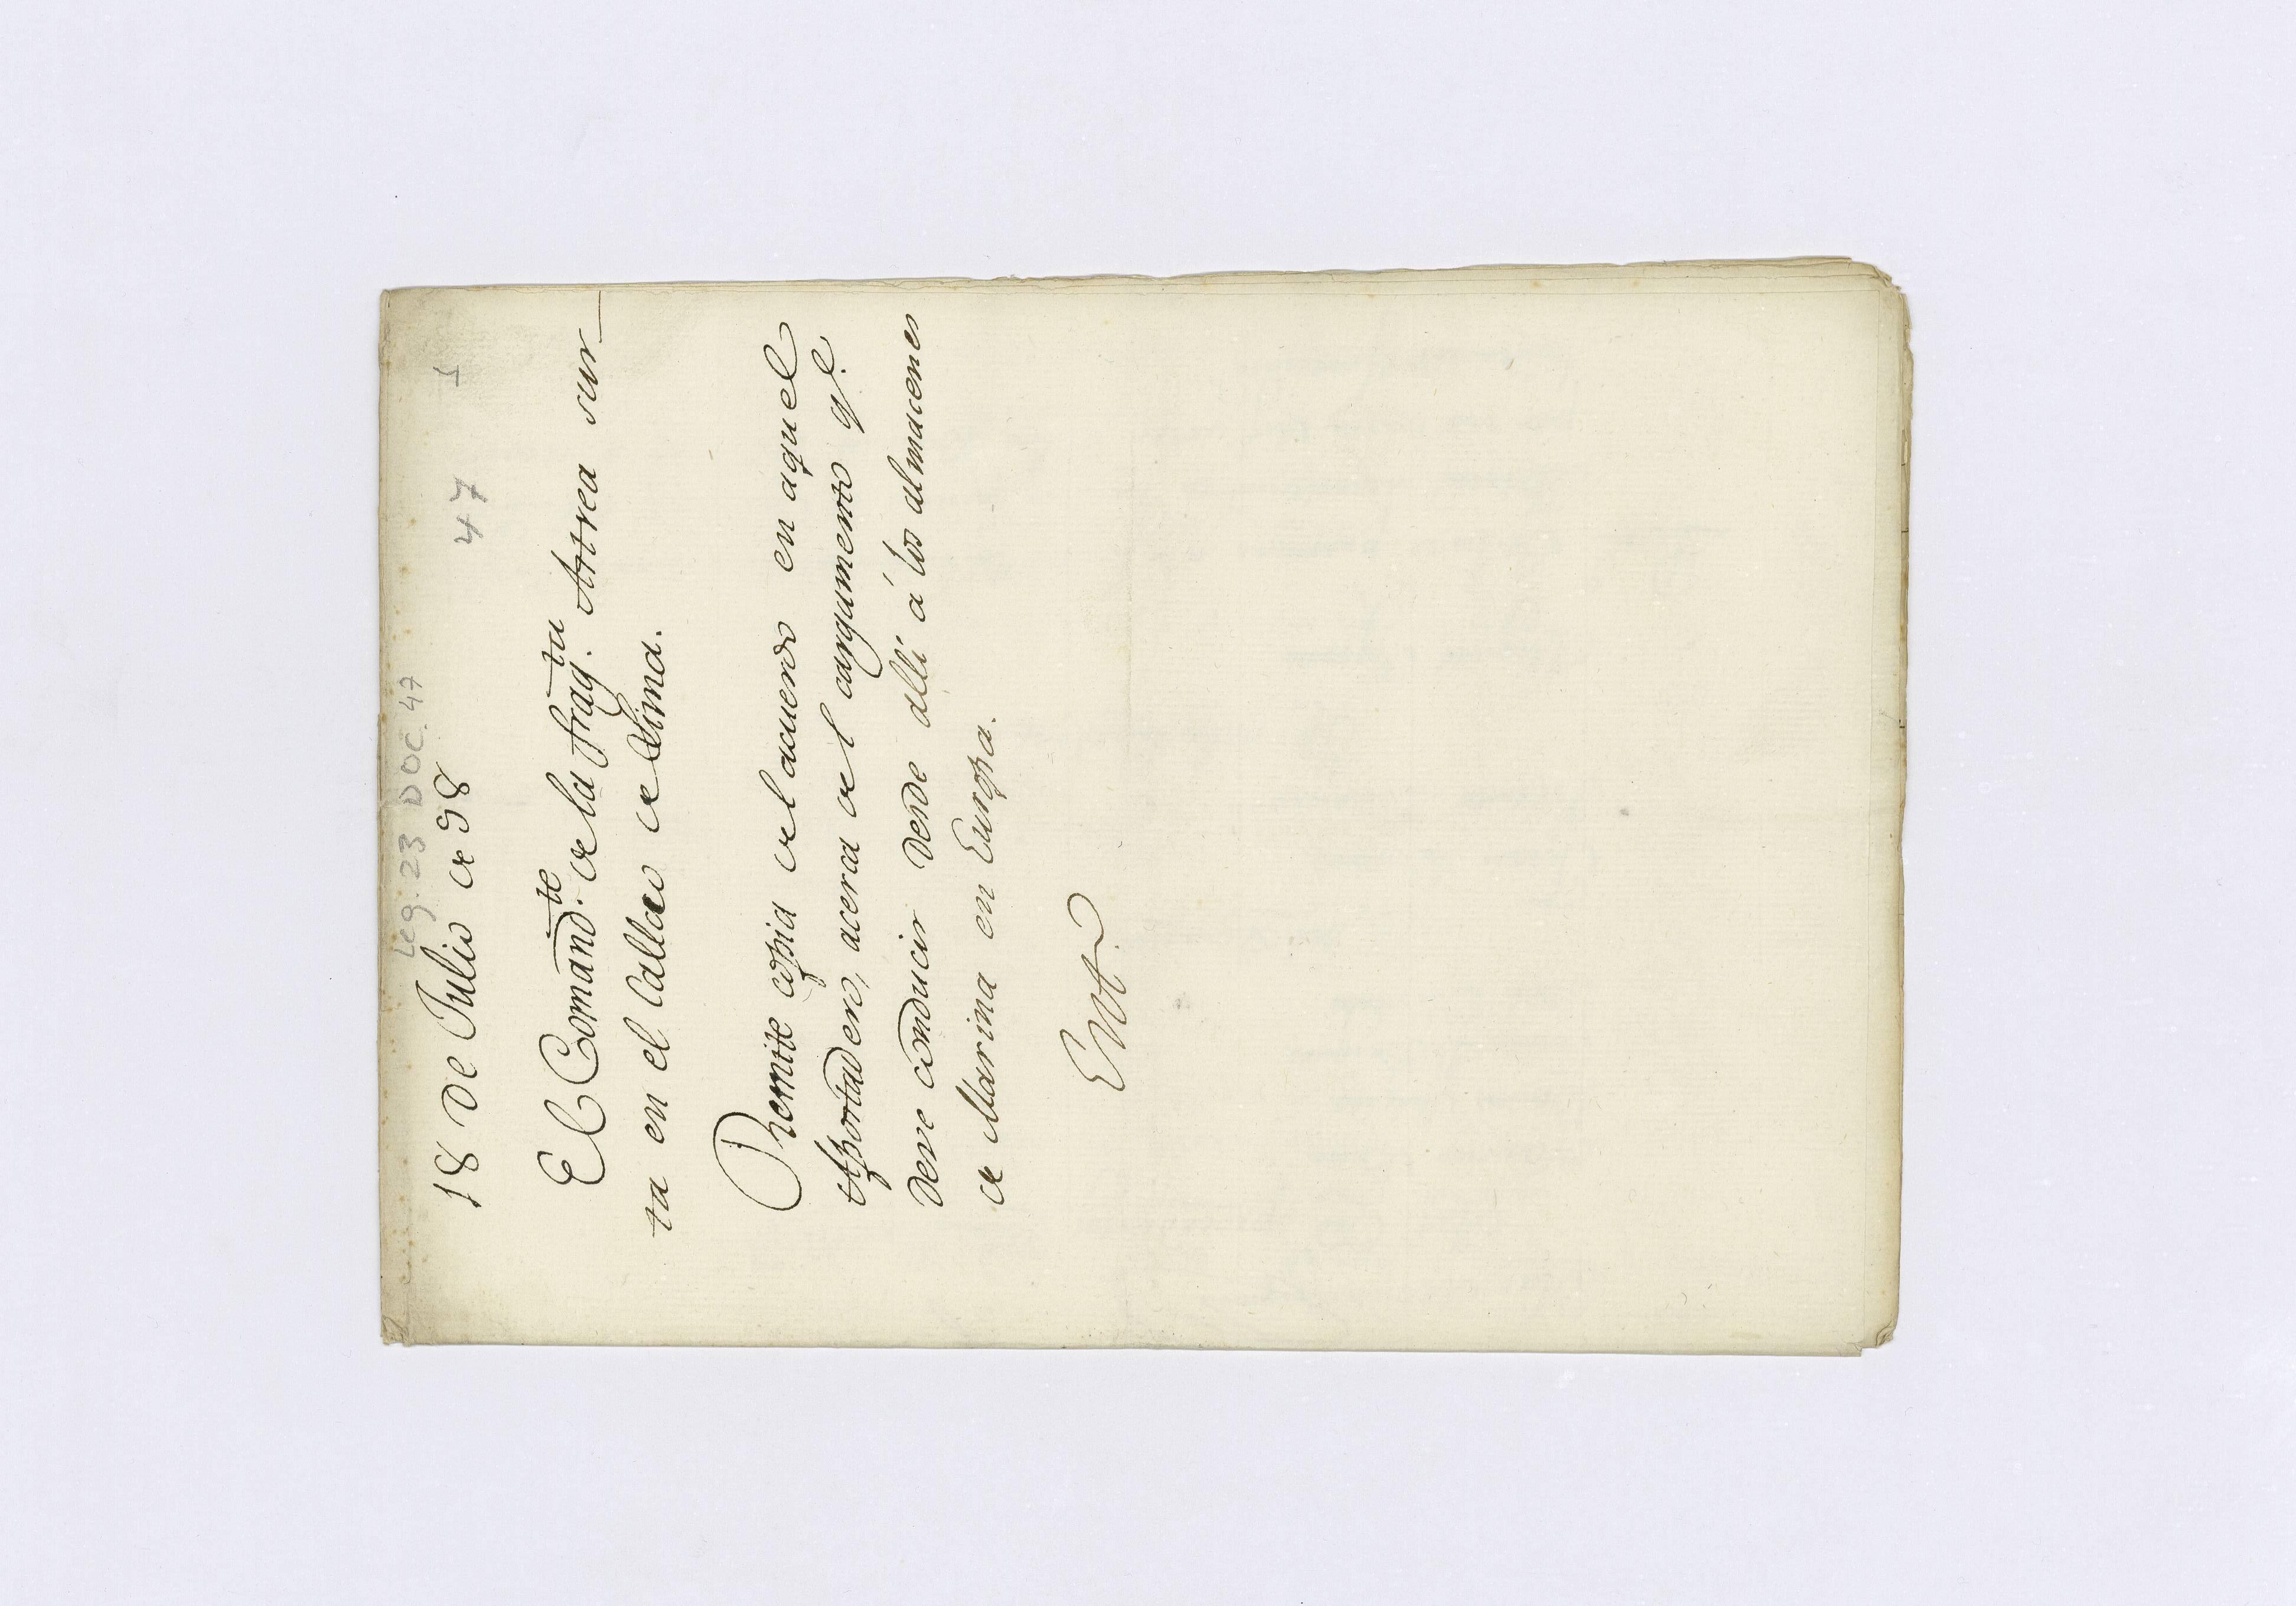 Leg. 23 DOC. 47
18 De Julio de 98
47
El Comand.te de la frag.ta Astrea sur-
ta en el Callao de Lima.
Remite copia del acuerdo en aquel
Apostadero, acerca del cargamento q.e
deve conducir desde allí á los almacenes
de Marina en Europa.